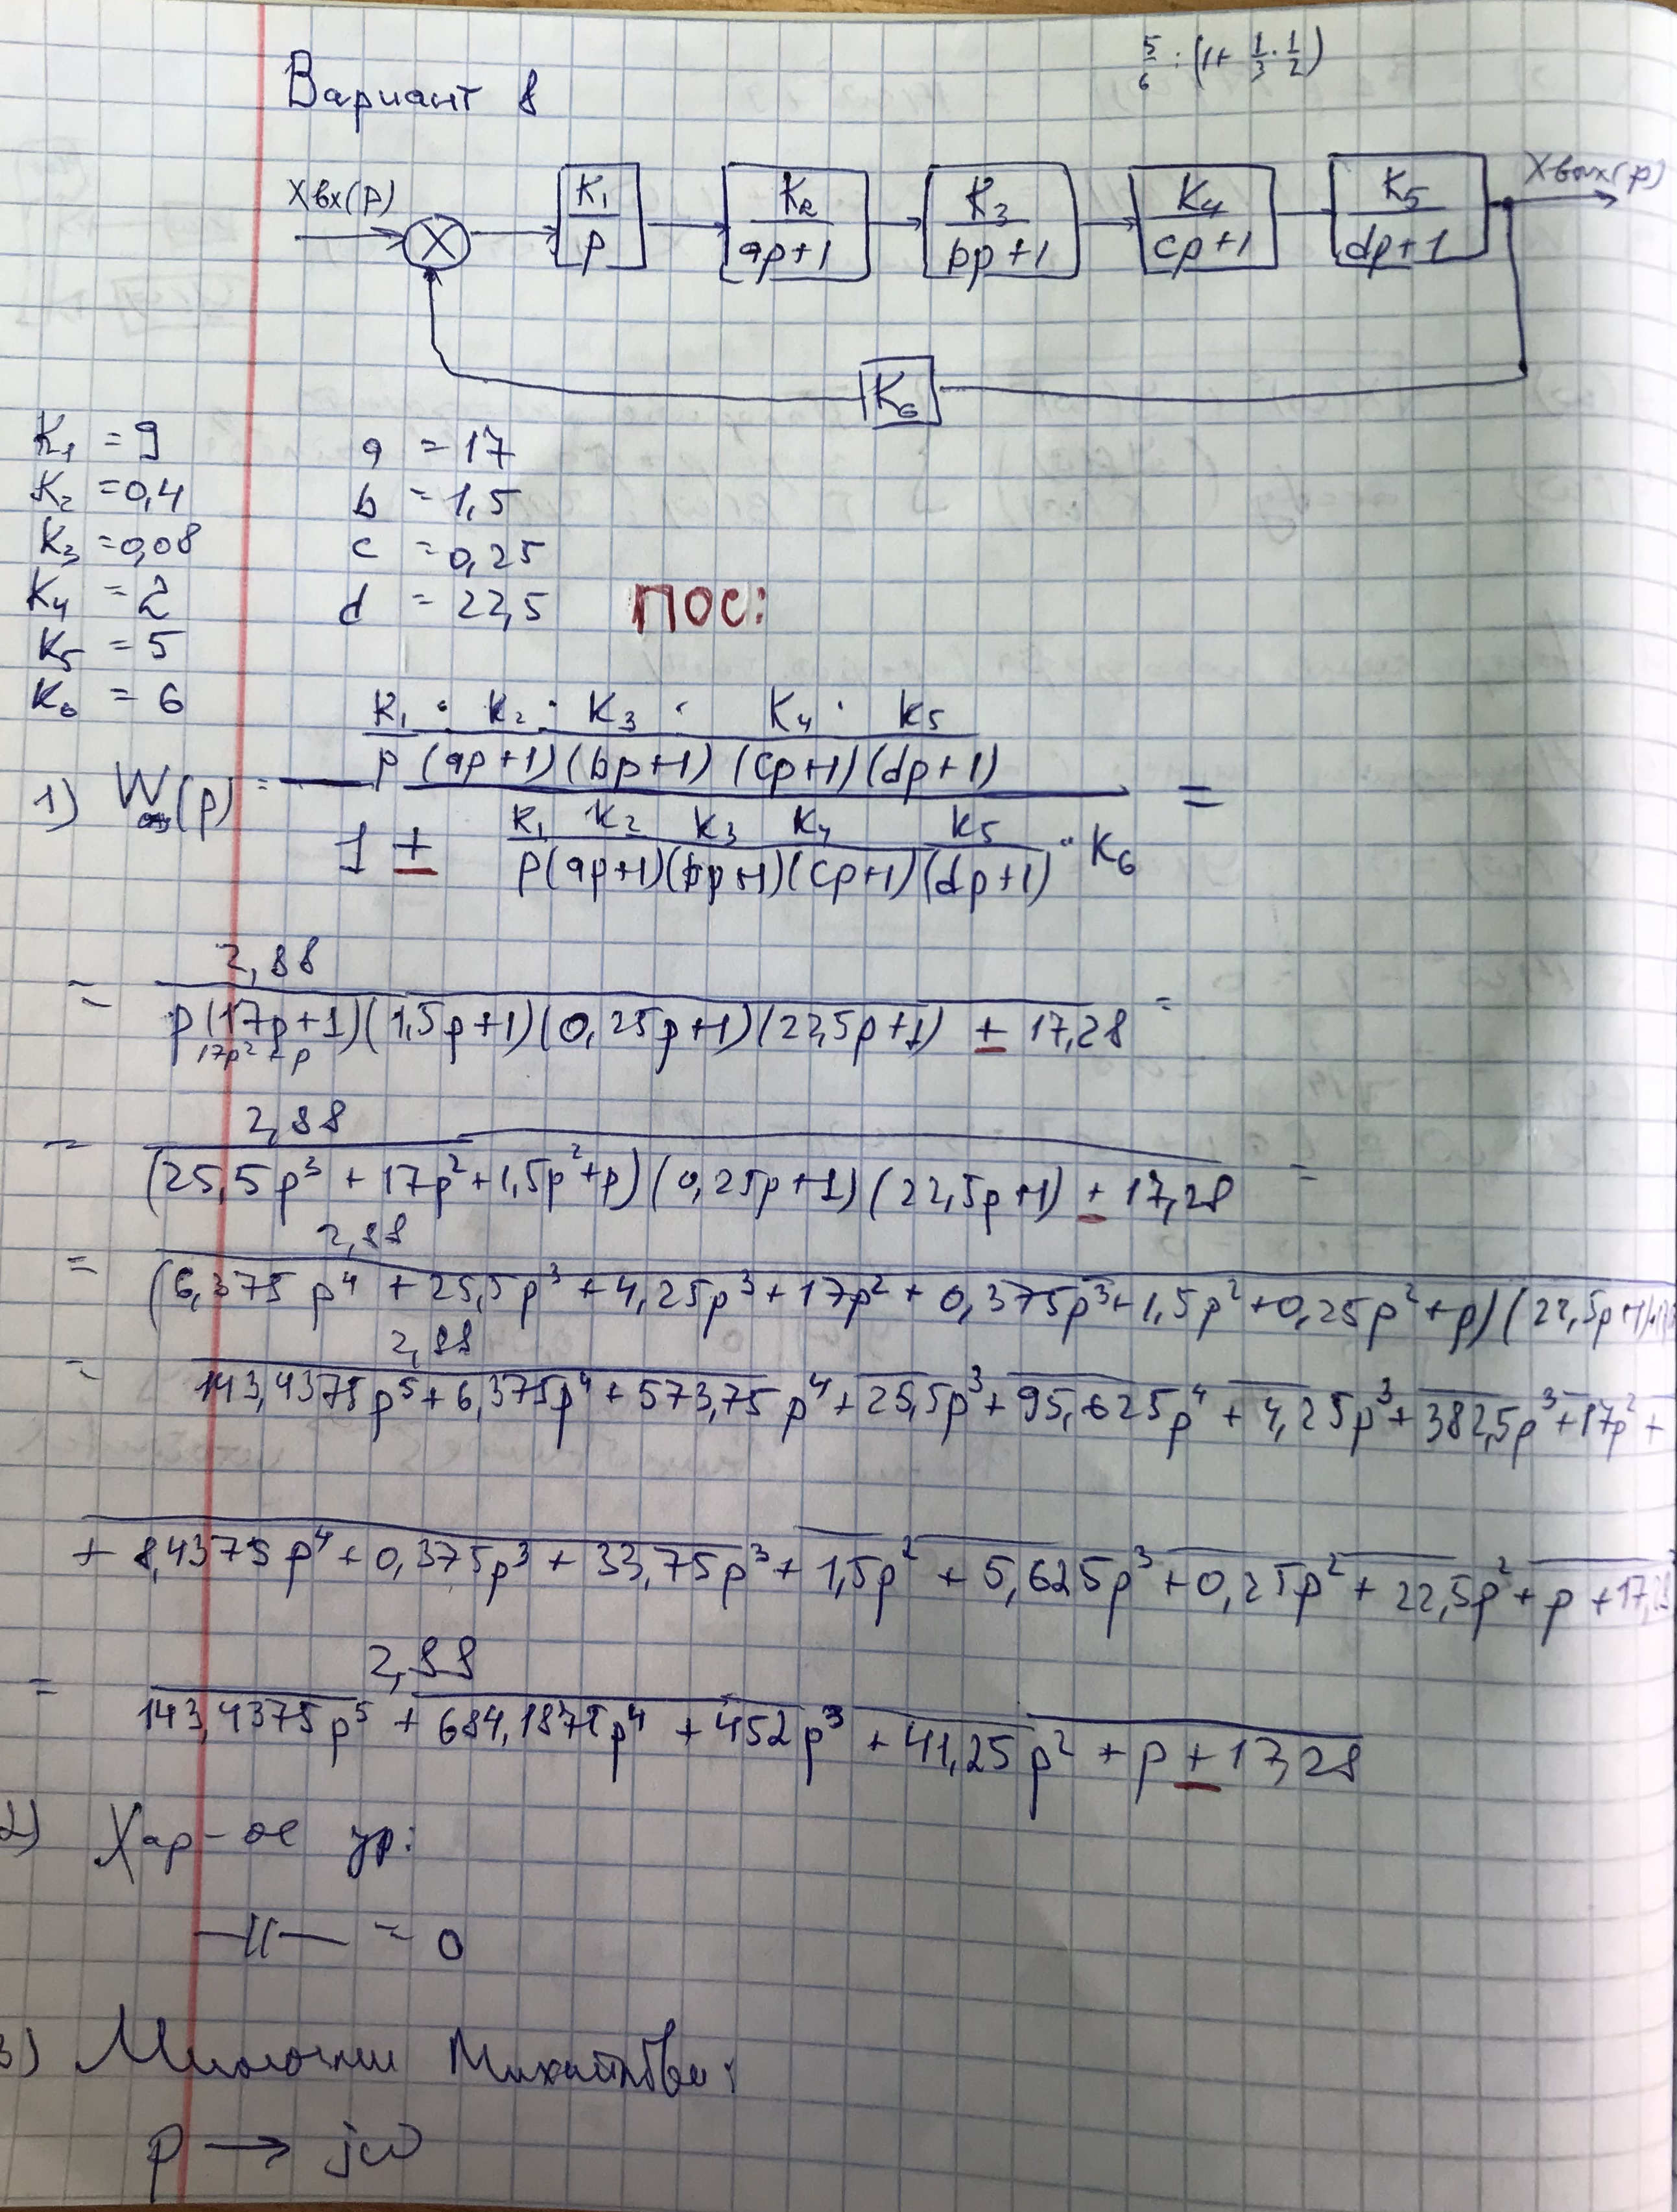 5/6 : (1 + 1/3 · 1/2)
Вариант 8
Xвх(p)
K₁/p
K₂/(ap+1)
K₃/(bp+1)
K₄/(cp+1)
K₅/(dp+1)
Xвых(p)
K₆
K₁ = 9
K₂ = 0,4
K₃ = 0,08
K₄ = 2
K₅ = 5
K₆ = 6
a = 17
b = 1,5
c = 0,25
d = 22,5
ПОС:
K₁ · K₂ · K₃ · K₄ · K₅
p (ap+1)(bp+1)(cp+1)(dp+1)
1) W (p) = =
K₁ K₂ K₃ K₄ K₅
1 ± p(ap+1)(bp+1)(cp+1)(dp+1) · K₆
2,88
= p(17p+1)(1,5p+1)(0,25p+1)(22,5p+1) ± 17,28 =
17p² + p
2,88
= (25,5p³ + 17p² + 1,5p² + p)(0,25p+1)(22,5p+1) ± 17,28 =
2,88
= (6,375p⁴ + 25,5p³ + 4,25p³ + 17p² + 0,375p³ + 1,5p² + 0,25p² + p)(22,5p+1)
2,88
= 143,4375p⁵ + 6,375p⁴ + 573,75p⁴ + 25,5p³ + 95,625p⁴ + 4,25p³ + 382,5p³ + 17p² +
+ 8,4375p⁴ + 0,375p³ + 33,75p³ + 1,5p² + 5,625p³ + 0,25p² + 22,5p² + p + 17,28
2,88
= 143,4375p⁵ + 684,1875p⁴ + 452p³ + 41,25p² + p ± 17,28
2) Хар-ое ур:
—//— = 0
3) Михайлова:
p → jω